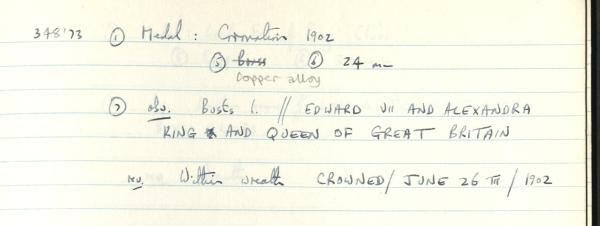 348'73 ① Medal : Coronation 1902
⑤ Brass ⑥ 24 mm
Copper alloy
⑦ obv. Busts l. // EDWARD VII AND ALEXANDRA
KING AND QUEEN OF GREAT BRITAIN
rev. Within wreath CROWNED / JUNE 26 TH / 1902